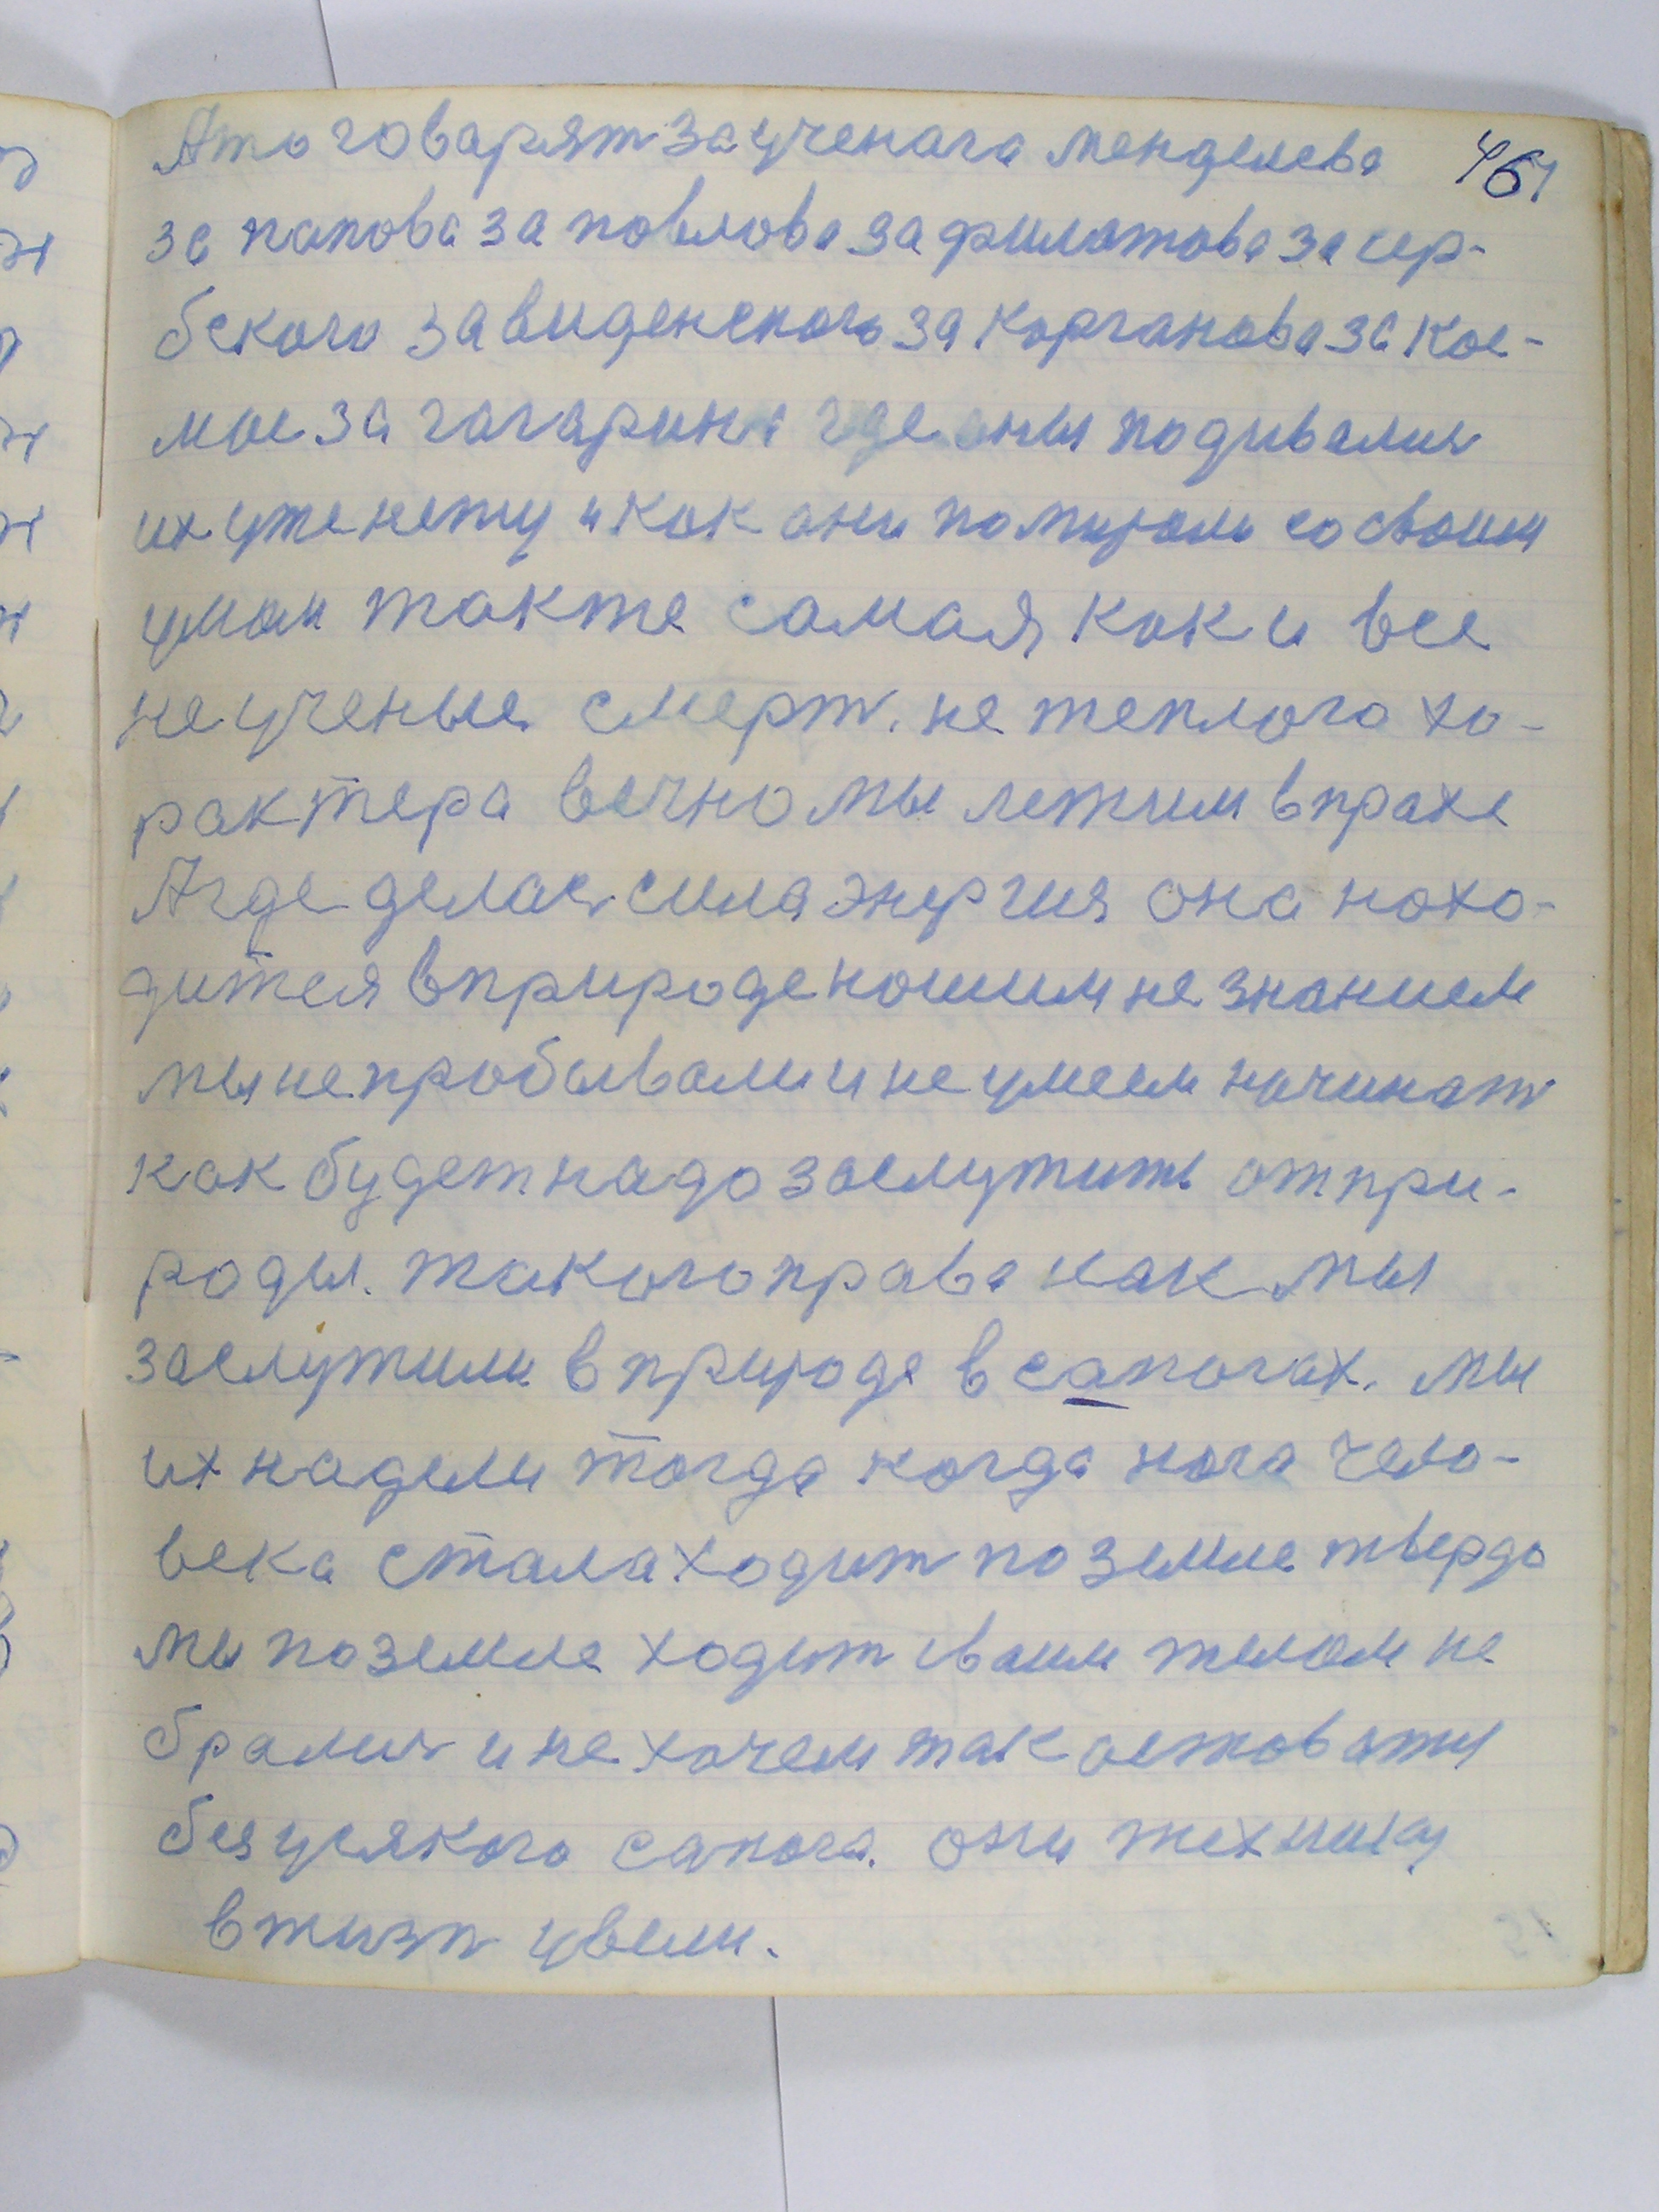 А то говарят за ученага менделева 461
за папова за повлова за филотова за сер-
бского за виденского за корганова за кос-
мос за гагарина где аны подивались
их уже нету и как они помирали со своим
умом так же самая как и все
не ученые смерт. не теплого ха-
рактера вечно мы лежим в прахе
А где делась сила энергия она нахо-
дится в природе нашим не знанием
мы не пробывали и не умеем начинат
как будет надо заслужить от при-
роды. такого права как мы
заслужили в природе в сапогах. мы
их надели тогда когда нога чело-
века стала ходит по земле твердо
мы по земле ходит своим телом не
брались и не хочем так оставаты
без усякого сапога. они технику
в жизн увели.